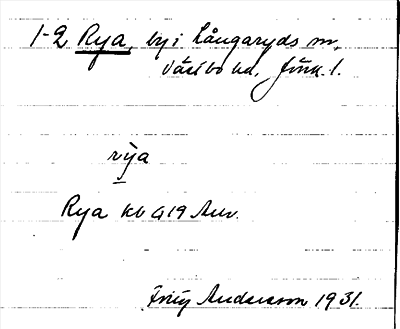 1-2 Rya, by i Långaryds sn,
Västbo hd, Jönk. l.
rỳa
Rya kb G19 Anv.
Fritz Andersson 1931.